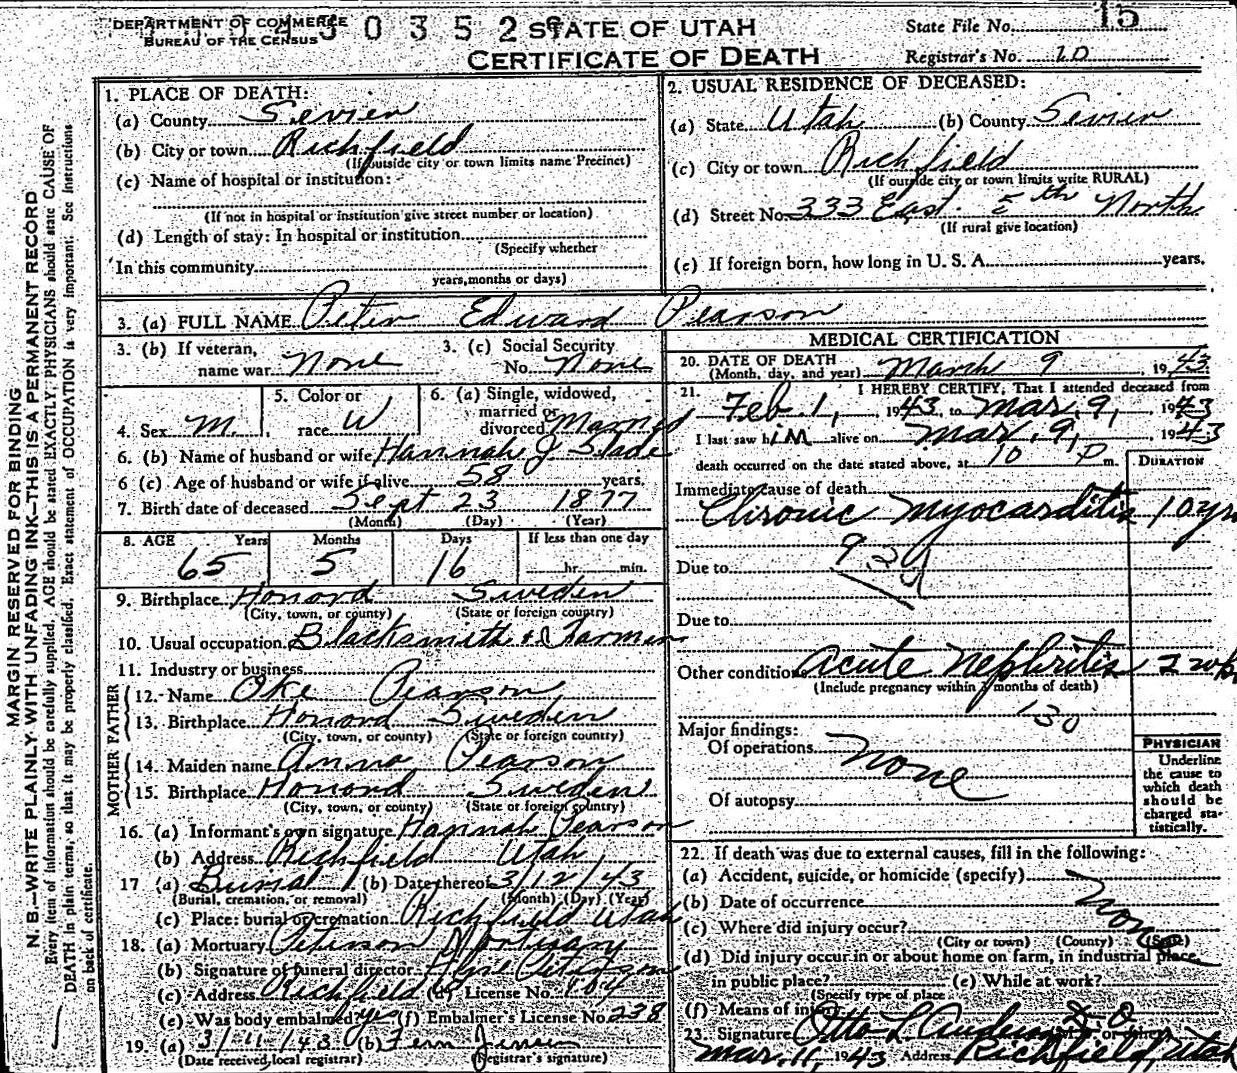 DEPARTMENT OF COMMERCE
BUREAU OF THE CENSUS
STATE OF UTAH
CERTIFICATE OF DEATH
State File No. 15
Registrar's No. 10
MARGIN RESERVED FOR BINDING
N. B.—WRITE PLAINLY WITH UNFADING INK—THIS IS A PERMANENT RECORD
Every item of information should be carefully supplied. AGE should be stated EXACTLY. PHYSICIANS should state CAUSE OF
DEATH in plain terms, so that it may be properly classified. Exact statement of OCCUPATION is very important. See instructions
on back of certificate.
1. PLACE OF DEATH:
(a) County Sevier
(b) City or town Richfield
(If outside city or town limits name Precinct)
(c) Name of hospital or institution:
(If not in hospital or institution give street number or location)
(d) Length of stay: In hospital or institution
(Specify whether
In this community
years, months or days)
2. USUAL RESIDENCE OF DECEASED:
(a) State Utah (b) County Sevier
(c) City or town Richfield
(If outside city or town limits write RURAL)
(d) Street No. 333 East 5th North
(If rural give location)
(e) If foreign born, how long in U. S. A. years.
3. (a) FULL NAME Peter Edward Pearson
3. (b) If veteran, name war None 3. (c) Social Security No. None
4. Sex M. 5. Color or race W 6. (a) Single, widowed, married or divorced Married
6. (b) Name of husband or wife Hannah J Slade
6 (c) Age of husband or wife if alive 58 years.
7. Birth date of deceased Sept 23 1877
(Month) (Day) (Year)
8. AGE Years Months Days If less than one day
65 5 16 hr. min.
9. Birthplace Honord Sweden
(City, town, or county) (State or foreign country)
10. Usual occupation Blacksmith & Farmer
11. Industry or business
FATHER
12. Name Oke Pearson
13. Birthplace Honord Sweden
(City, town, or county) (State or foreign country)
MOTHER
14. Maiden name Anna Pearson
15. Birthplace Honord Sweden
(City, town, or county) (State or foreign country)
16. (a) Informant's own signature Hannah Pearson
(b) Address Richfield Utah
17 (a) Burial (b) Date thereof 3/12/43
(Burial, cremation, or removal) (Month) (Day) (Year)
(c) Place: burial or cremation Richfield Utah
18. (a) Mortuary Peterson Mortuary
(b) Signature of funeral director Peterson
(c) Address Richfield (d) License No. 104
(e) Was body embalmed? yes (f) Embalmer's License No. 238
19. (a) 3/11/43 (b) Fern Jensen
(Date received, local registrar) (Registrar's signature)
MEDICAL CERTIFICATION
20. DATE OF DEATH March 9, 1943
(Month, day, and year)
21. I HEREBY CERTIFY, That I attended deceased from
Feb. 1, 1943, to Mar. 9, 1943
I last saw him alive on Mar. 9, 1943
death occurred on the date stated above, at 10 P m.
DURATION
Immediate cause of death
Chronic Myocarditis 10 yrs
Due to
Due to
Other condition Acute Nephritis 2 wks
(Include pregnancy within 3 months of death)
130
Major findings:
Of operations None
Of autopsy
PHYSICIAN
Underline
the cause to
which death
should be
charged sta-
tistically.
22. If death was due to external causes, fill in the following:
(a) Accident, suicide, or homicide (specify)
(b) Date of occurrence None
(c) Where did injury occur?
(City or town) (County) (State)
(d) Did injury occur in or about home on farm, in industrial place
in public place? (e) While at work?
(Specify type of place
(f) Means of injury
23. Signature Otto L Anderson D. O.
Mar. 11, 1943 Address Richfield, Utah